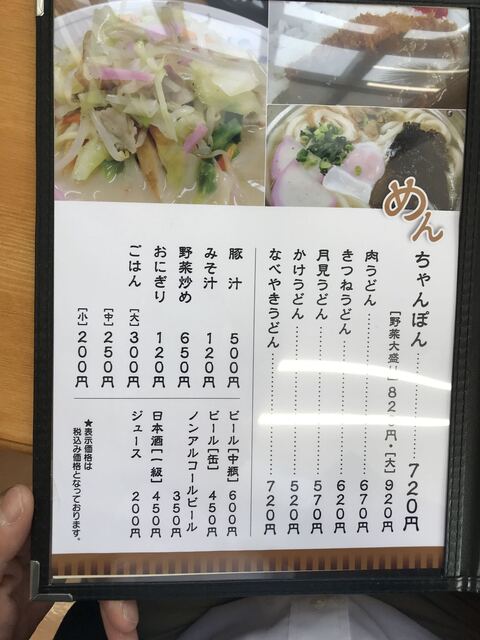 めん
ちゃんぽん………720円
[野菜大盛り]820円・[大]920円
肉うどん………670円
きつねうどん………620円
月見うどん………570円
かけうどん………520円
なべやきうどん………720円
豚汁 500円
みそ汁 120円
野菜炒め 650円
おにぎり 120円
ごはん [大]300円
[中]250円
[小]200円
ビール[中瓶]600円
ビール[缶] 450円
ノンアルコールビール
350円
日本酒[一級]450円
ジュース 200円
★表示価格は
税込み価格となっております。